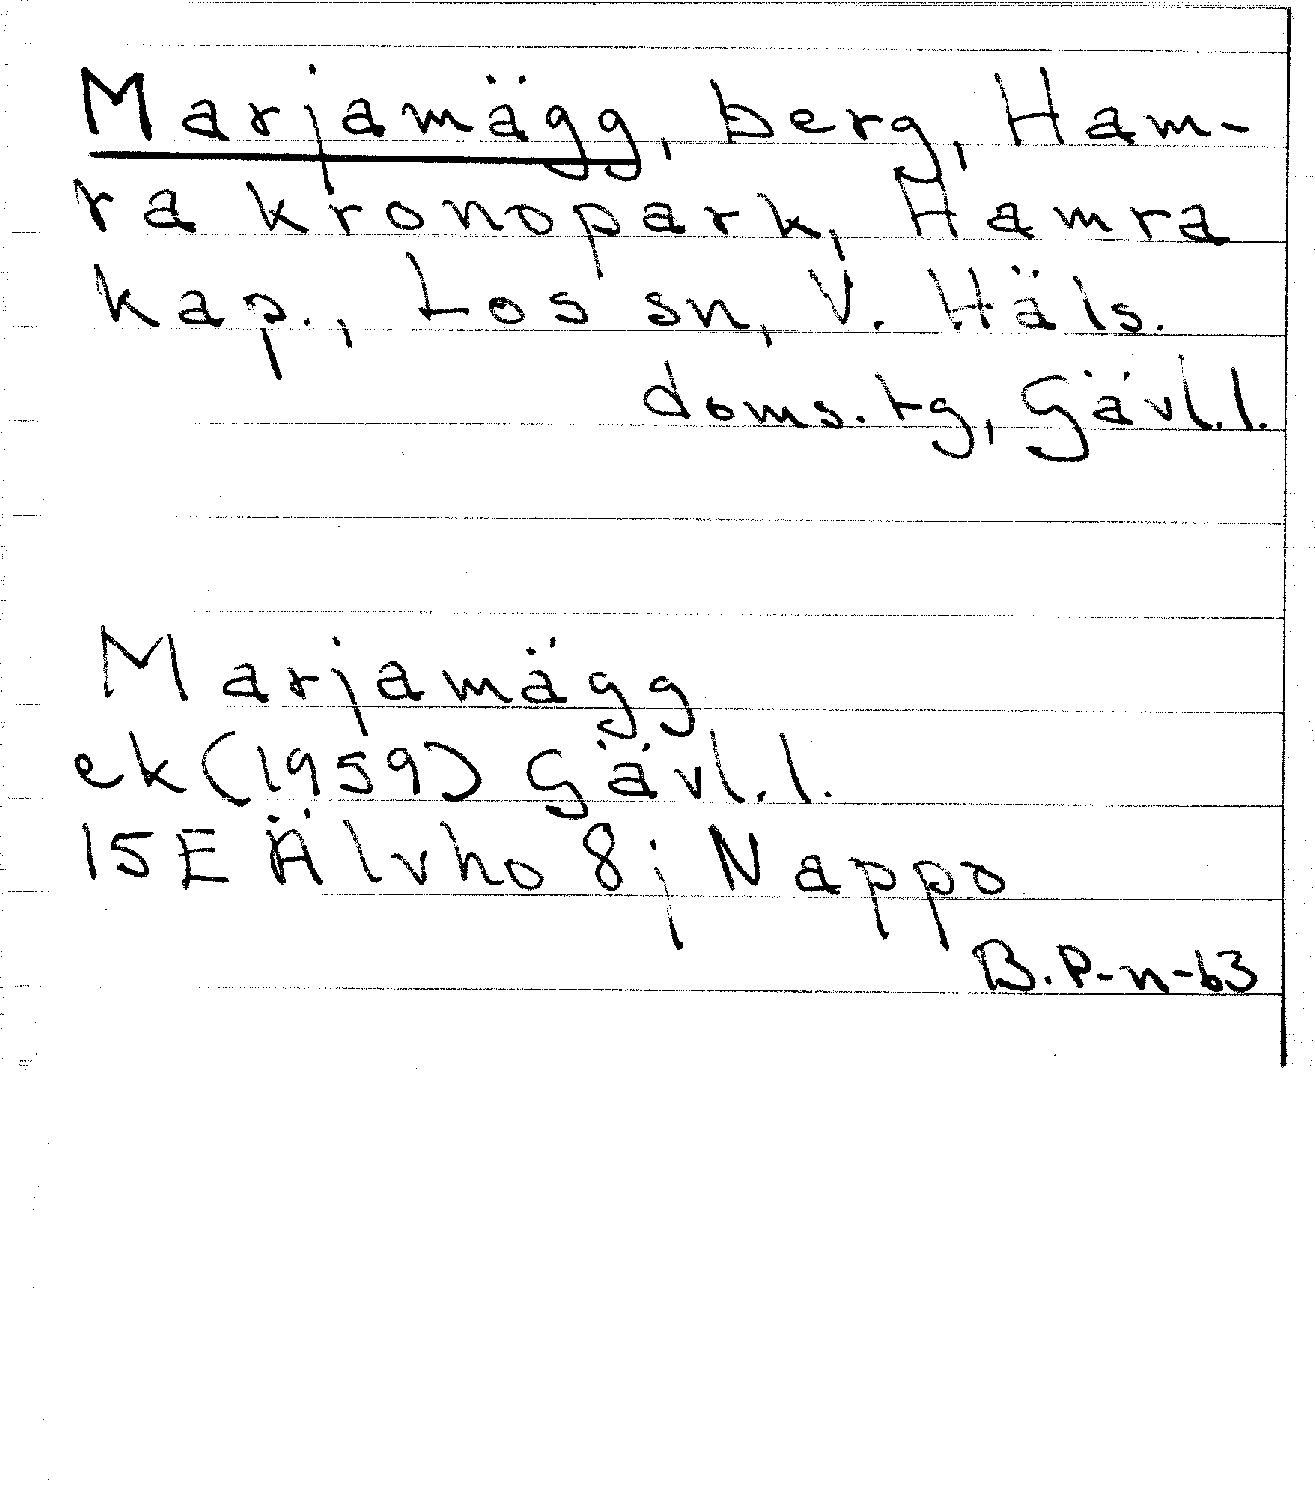 Marjamägg, berg, Ham-
ra kronopark, Hamra
kap., Los sn, V. Häls.
doms. tg, Gävl. l.
Marjamägg
ek (1959) Gävl. l.
15E Älvho 8j Nappo
B. P-n-63